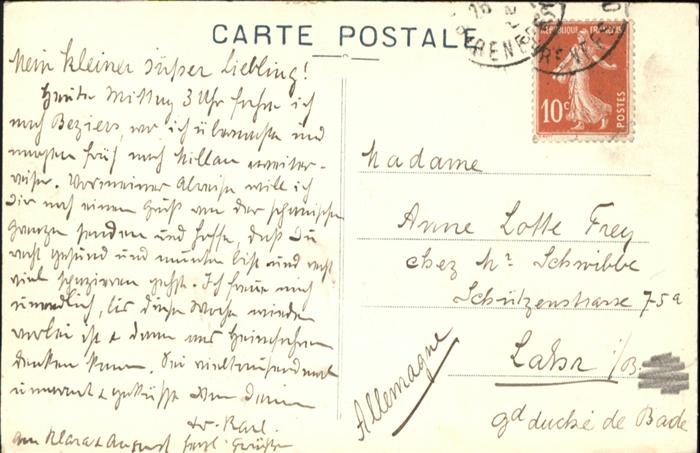 CARTE POSTALE
RÉPUBLIQUE FRANÇAISE
10c
POSTES
Mein kleiner süßer Liebling!
Heute Mittag 3 Uhr fahre ich
nach Beziers, wo ich übernachte und
morgen früh nach Millau weiter-
reise. Vor meiner Abreise will ich
Dir noch einen Gruß von der spanischen
Grenze senden und hoffe, daß Du
recht gesund und munter bist und recht
viel spazieren gehst. Ich freue mich
unendlich, bis diese Woche wieder
vorbei ist & dann ans Heimfahren
denken kann. Sei vieltausendmal
umarmt & geküßt von Deinem
tr. Karl.
an Klara & August herzl. Grüße
Madame
Anne Lotte Frey
chez Mr. Schwibbe
Schützenstrasse 75a
Lahr i/B.
gd duché de Bade
Allemagne